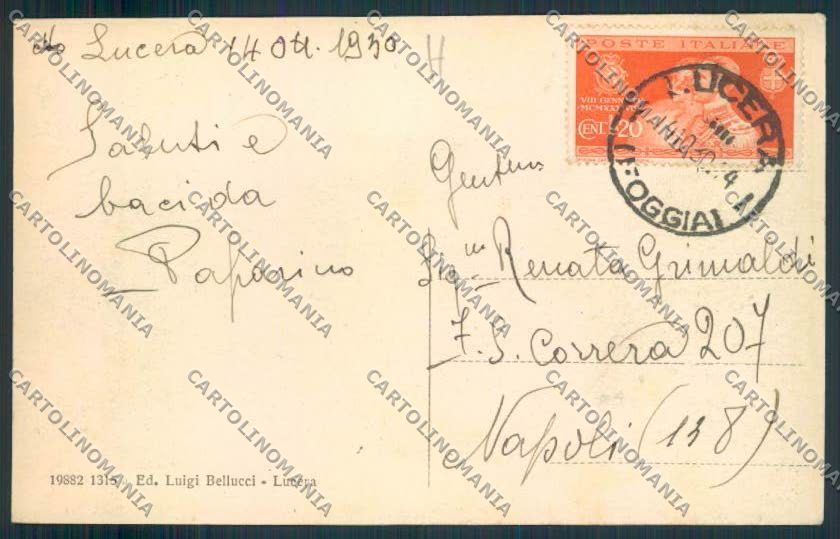 Lucera 14 Ott. 1930
Saluti e
baci da
Paparino
POSTE ITALIANE
VIII GENNAIO
CENT. 20
LUCERA
(FOGGIA)
Gentma
Sigma Renata Grimaldi
F. S. Correra 207
Napoli (138)
19882 1315 Ed. Luigi Bellucci - Lucera
CARTOLINOMANIA